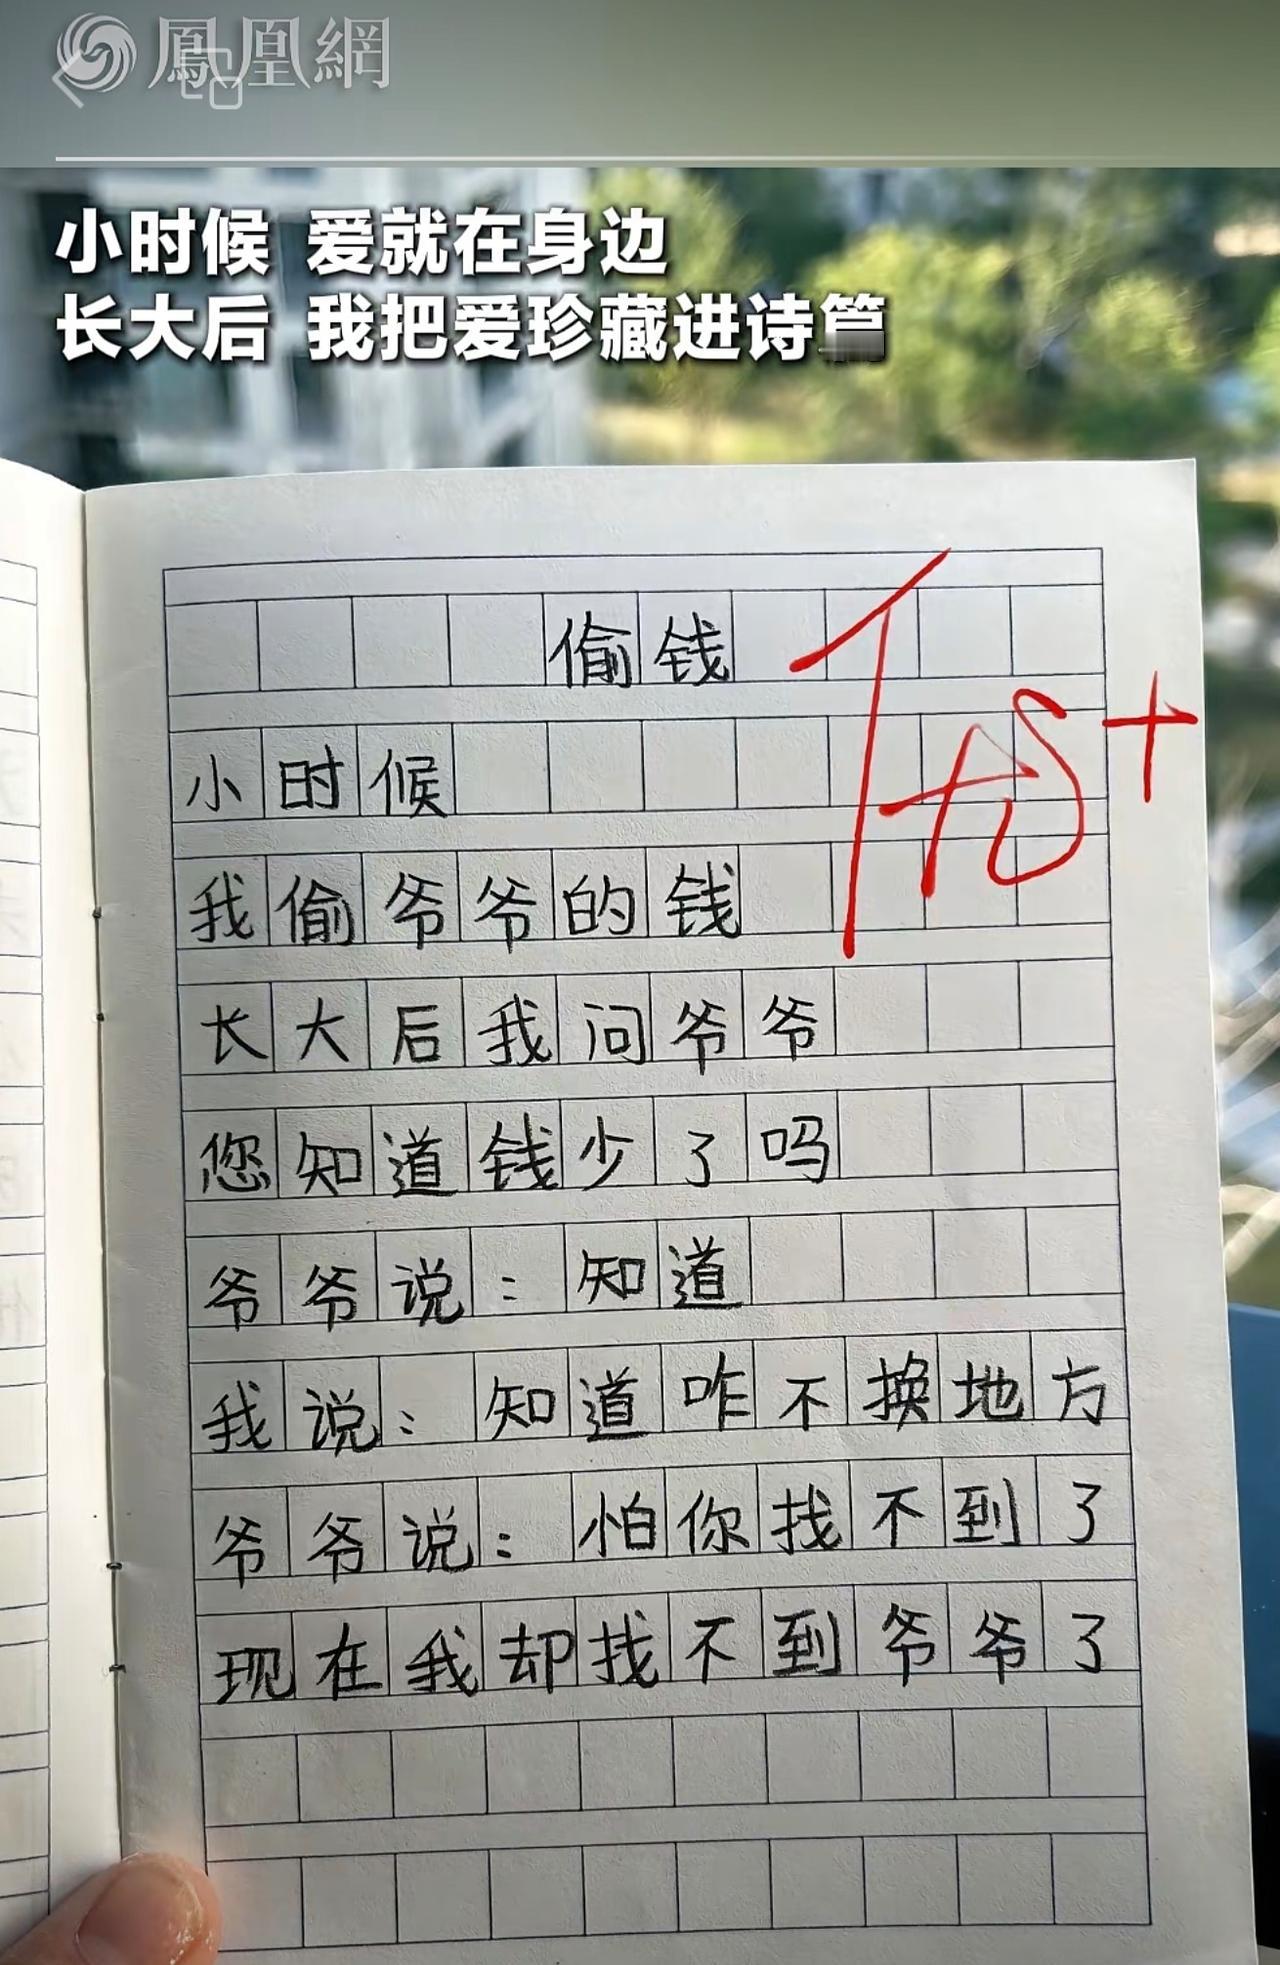 鳳凰網
小时候 爱就在身边
长大后 我把爱珍藏进诗篇
偷钱
小时候
我偷爷爷的钱
长大后我问爷爷
您知道钱少了吗
爷爷说：知道
我说：知道咋不换地方
爷爷说：怕你找不到了
现在我却找不到爷爷了